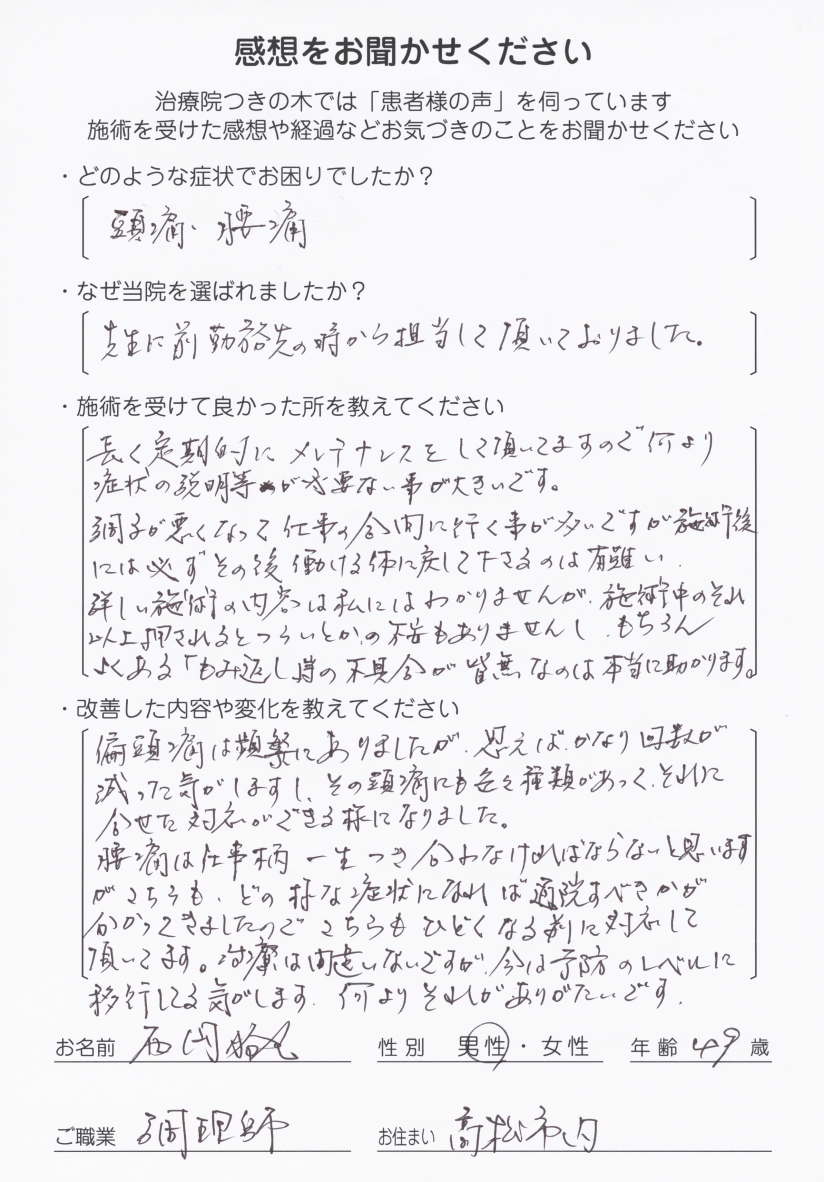 感想をお聞かせください
治療院つきの木では「患者様の声」を伺っています
施術を受けた感想や経過などお気づきのことをお聞かせください
・どのような症状でお困りでしたか?
頭痛・腰痛
・なぜ当院を選ばれましたか?
先生に前勤務先の時から担当して頂いておりました。
・施術を受けて良かった所を教えてください
長く定期的にメンテナンスをして頂いてますので何より
症状の説明等が必要ない事が大きいです。
調子が悪くなって仕事の合間に行く事が多いですが施術後
には必ずその後働ける体に戻して下さるのは有難い.
詳しい施術の内容は私にはわかりませんが、施術中のそれ
以上押されるとつらいとかの不安もありませんし、もちろん
よくある「もみ返し」等の不具合が皆無なのは本当に助かります。
・改善した内容や変化を教えてください
偏頭痛は頻繁にありましたが、思えば、かなり回数が
減った気がしますし、その頭痛にも色々種類があって、それに
合せた対応ができる様になりました。
腰痛は仕事柄 一生つき合わなければならないと思います
がこちらも、どの様な症状になれば通院すべきかが
分かってきましたのでこちらもひどくなる前に対応して
頂いてます。治療は間違いないですが、今は予防のレベルに
移行してる気がします. 何よりそれがありがたいです.
お名前 西岡
性別 男性・女性
年齢 49 歳
ご職業 調理師
お住まい 高松市内